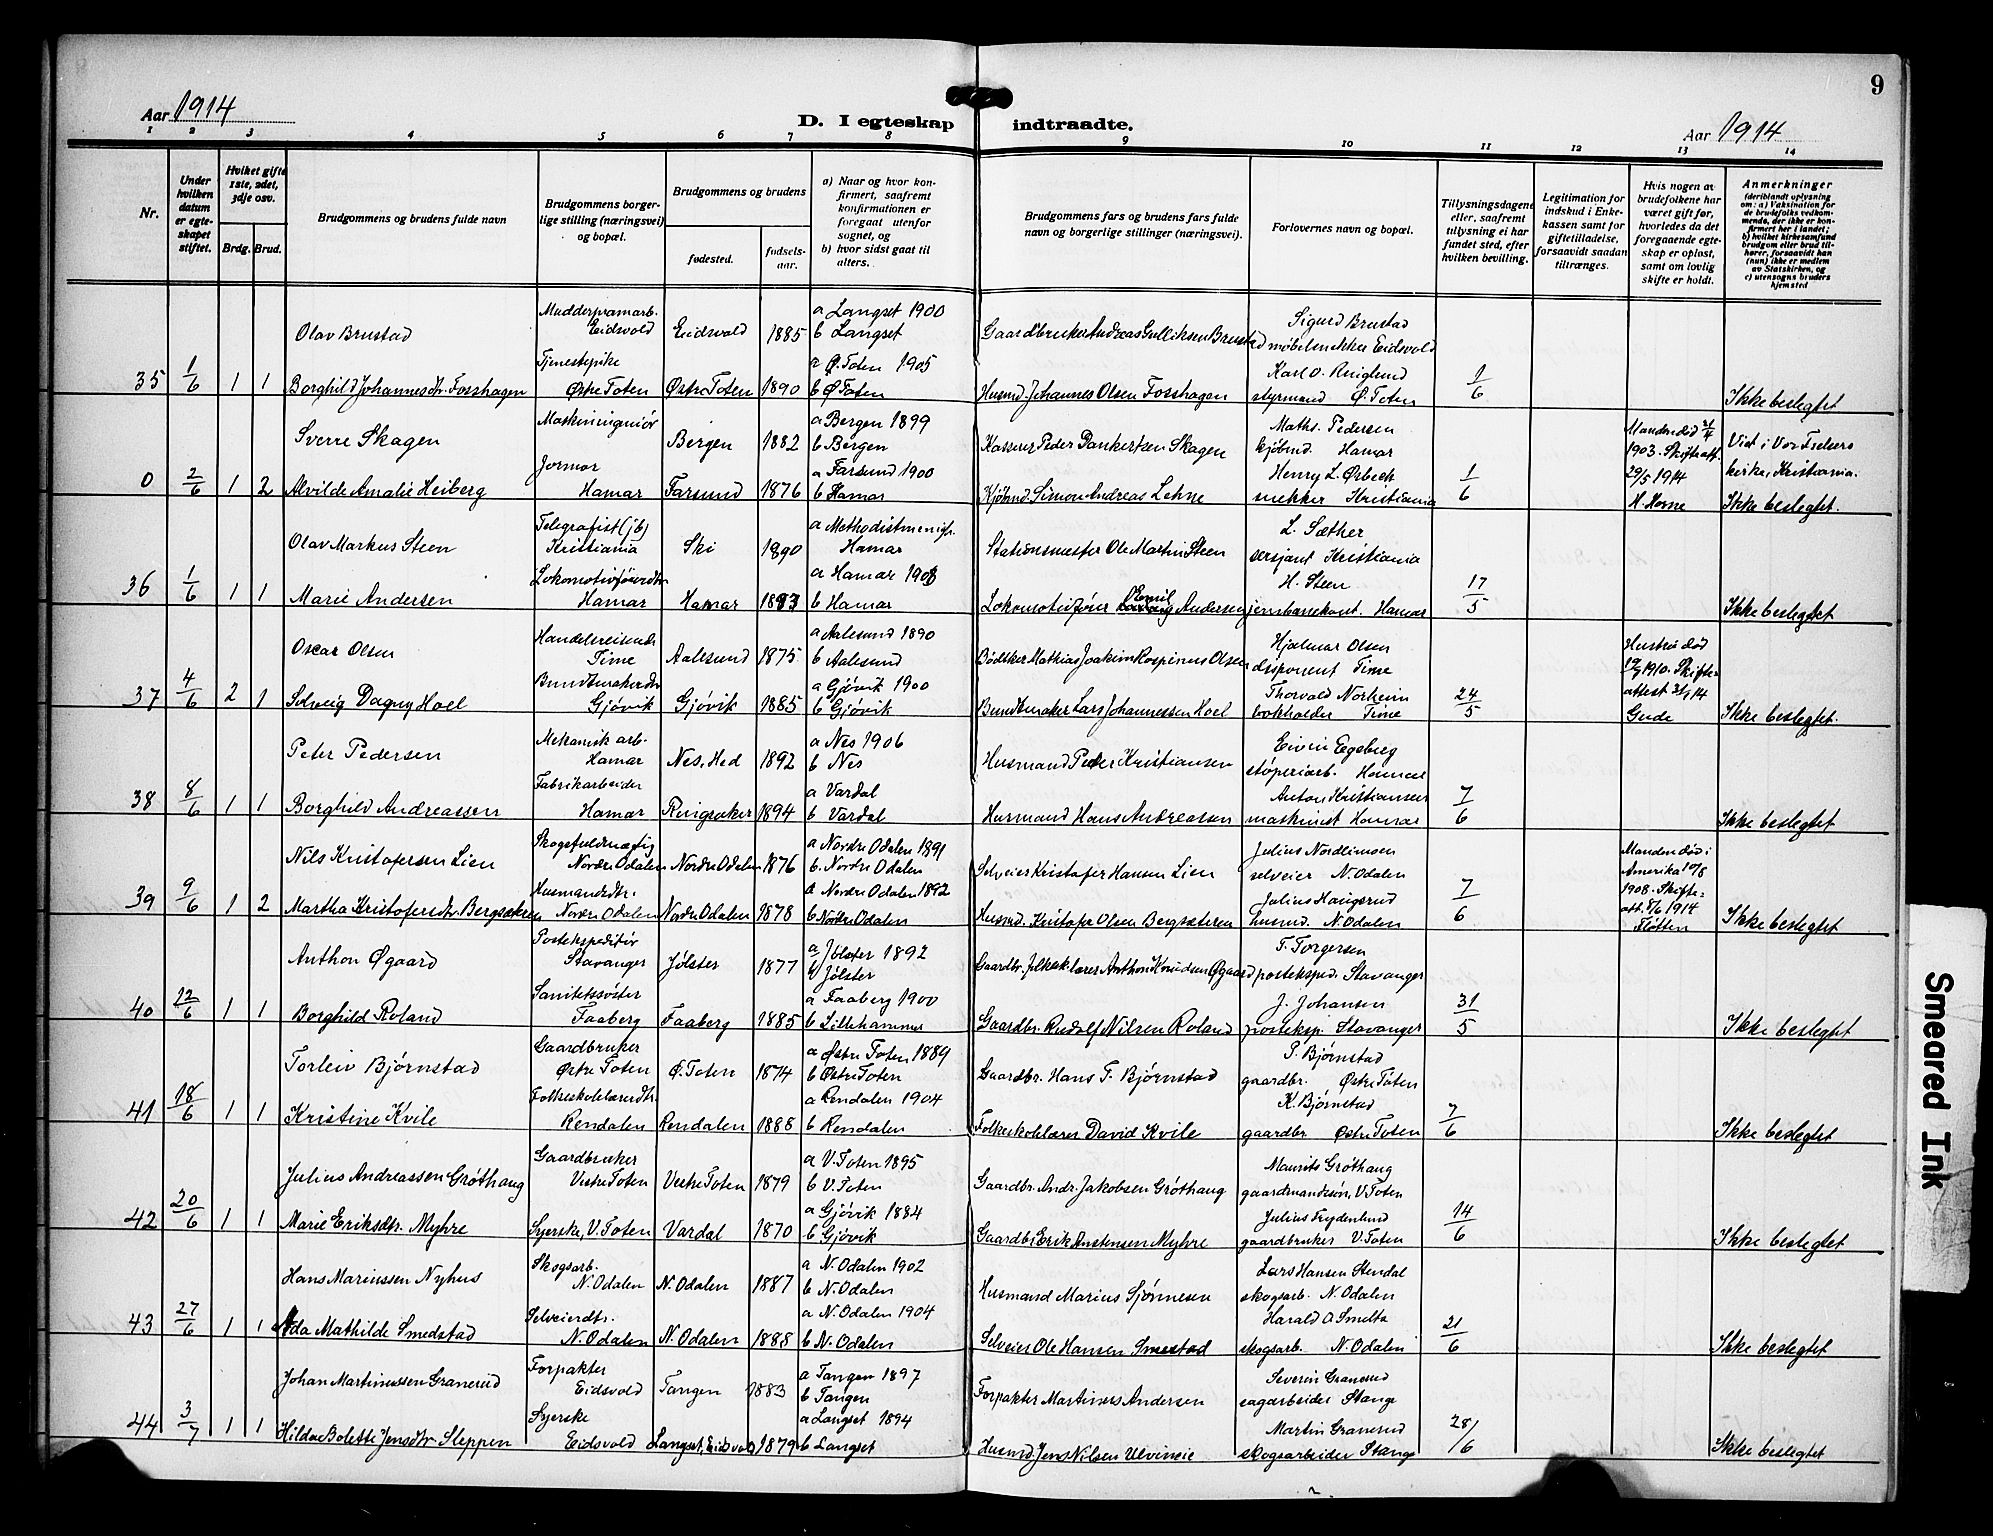 9
Aar 1914
D. I egteskap indtraadte.
Aar 1914
1 2 3 4 5 6 7 8 9 10 11 12 13 14
Nr.
Under hvilken datum er egteskapet stiftet.
Hvilket gifte 1ste, 2det, 3dje osv.
Brdg. Brud.
Brudgommens og brudens fulde navn
Brudgommens borgerlige stilling (næringsvei) og bopæl.
Brudgommens og brudens
fødested.
fødselsaar.
a) Naar og hvor konfirmert, saafremt konfirmationen er foregaat utenfor sognet, og
b) hvor sidst gaat til alters.
Brudgommens fars og brudens fars fulde navn og borgerlige stillinger (næringsvei).
Forlovernes navn og bopæl.
Tillysningsdagene eller, saafremt tillysning ei har fundet sted, efter hvilken bevilling.
Legitimation for indskud i Enkekassen samt for giftetilladelse, forsaavidt saadan tiltrænges.
Hvis nogen av brudefolkene har været gift før, hvorledes da det foregaaende egteskap er opløst, samt om lovlig skifte er holdt.
Anmerkninger (deriblandt oplysning om: a) Vaksination for de brudefolks vedkommende, der ikke er konfirmert her i landet; b) hvilket kirkesamfund brudgom eller brud tilhører, forsaavidt han (hun) ikke er medlem av Statskirken, og c) utensogns bruders hjemsted
Mudderpramarb. a Langset 1900 Sigurd Brustad
Olav Brustad Eidsvold Eidsvold 1885 b Langset Gaardbruker Andreas Gulliksen Brustad møbelsnekker Eidsvold
Tjenestepike a Ø. Toten 1905 Karl O.
35 1/6 1 1 Borghild Johannesdtr. Fosshagen Østre Toten Østre Toten 1890 b Ø Toten Husmd. Johannes Olsen Fosshagen styrmand Ø. Toten 1/6 Ikke beslegtet
Maskiningeniør a Bergen 1899 Maths. Pedersen Manden død 21/4
Sverre Skagen Bergen 1882 b Bergen Kasserer Peder Dankertsen Skagen kjøbmd. Hamar 1903. Skifteatt. Viet i Vor Frelsers
a Farsund 1900 Henry L. Ørbeck 29/5 1914 kirke, Kristiania.
0 2/6 1 2 Alvilde Amalie Heiberg Hamar Farsund 1876 b Hamar Kjøbmd. Simon Andreas Lehne Kristiania 1/6 H. Horne Ikke beslegtet.
Telegrafist (jb) a Methodistmenigh. L. Sæther
Olav Markus Steen Kristiania Ski 1890 Hamar Stationsmester Ole Martin Steen sersjant Kristiania
Lokomotivførerdtr. a Hamar 1908 H. Steen
36 1/6 1 1 Marie Andersen Hamar Hamar 1893 b Hamar Lokomotivfører Emil Andersen jernbanekont. Hamar 17/5 Ikke beslegtet
Handelsreisende a Aalesund 1890 Hjalmar Olsen Hustru død
Oscar Olsen Time Aalesund 1875 b Aalesund Bødtker Mathias Joakim Rospinus Olsen disponent Time 1910. Skifte-
Bundtmakerdtr. a Gjøvik 1900 Thorvald Norheim attest
37 4/6 2 1 Solveig Dagny Hoel Gjøvik Gjøvik 1885 b Gjøvik Bundtmaker Lars Johannessen Hoel bokholder Time 24/5 Gude Ikke beslegtet.
Mekanisk arb. a Nes 1906 Eivin Egeberg
Peter Pedersen Hamar Nes, Hed 1892 b Nes Husmand Peder Kristiansen støperiarb. Hamar
Fabrikarbeider a Vardal Anton Kristiansen
38 8/6 1 1 Borghild Andreassen Hamar Ringsaker 1894 b Vardal Husmand Hans Andreassen maskinist Hamar 7/6 Ikke beslegtet
a Nordre Odalen 1891 Julius Nordlimoen Manden død i
Nils Kristofersen Lien Nordre Odalen Nordre Odalen 1876 b. Nordre Odalen Selveier Kristofer Hansen Lien selveier N. Odalen Amerika 10/8
Husmandsdtr. a Nordre Odalen 1892 Julius Haugerud 1908. Skifte-
39 9/6 1 2 Martha Kristofersdtr. Bergsæteren Nordre Odalen Nordre Odalen 1878 b Nordre Odalen Husmd. Kristofer Olsen Bergsæteren husmd. N. Odalen 7/6 att. 8/6 1914 Fløtten Ikke beslegtet
Postekspeditør a Jølster 1892 T. Torgersen
Anthon Øgaard Stavanger Jølster 1877 b Jølster Gaardbr. folkesk.lærer Anthon Knudsen Øgaard posteksped. Stavanger
Sanitetssøster a Faaberg 1900 J. Johansen
40 12/6 1 1 Borghild Roland Faaberg Faaberg 1885 b Lillehammer Gaardbr. Rudolf Nilsen Roland posteksp. Stavanger 31/5 Ikke beslegtet
Gaardbruker a Østre Toten 1889 P. Bjørnstad
Torleiv Bjørnstad Østre Toten Ø. Toten 1874 b Østre Toten Gaardbr. Hans T. Bjørnstad gaardbr. Østre Toten
Folkeskolelærerdtr. a Rendalen 1904 K. Bjørnstad
41 18/6 1 1 Kristine Kvile Rendalen Rendalen 1888 b Rendalen Folkeskolelærer David Kvile gaardbr. Østre Toten 7/6 Ikke beslegtet
Gaardbruker a V. Toten 1895 Maurits Grøthaug
Julius Andreassen Grøthaug Vestre Toten Vestre Toten 1879 b V. Toten Gaardbr. Andr. Jakobsen Grøthaug gaardmandssøn, V. Toten
a Gjøvik 1884 Julius Frydenlund
42 20/6 1 1 Marie Eriksdtr. Myhre Syerske, V. Toten Vardal 1870 b Gjøvik Gaardb. Erik Anstensen Myhre gaardbruker V. Toten 14/6 Ikke beslegtet
Skogsarb. a N. Odalen 1902 Lars Hansen Stendal
Hans Mariussen Nyhus N. Odalen N. Odalen 1887 b N. Odalen Husmand Marius Sjønnesen skogsarb. N. Odalen
Selveierdtr. a N. Odalen 1904 Harald O. Smelta
43 27/6 1 1 Ada Mathilde Smedstad N. Odalen N. Odalen 1888 b N. Odalen Selveier Ole Hansen Smestad skogsarb. N. Odalen 21/6 Ikke beslegtet
Forpakter a Tangen 1897 Severin Granerud
Johan Martinussen Granerud Eidsvold Tangen 1883 b Tangen Forpakter Martinus Andersen sagarbeider Stange
Syerske a Langset 1894 Martin Granerud
44 3/7 1 1 Hilda Bolette Jensdtr. Sleppen Eidsvold Langset, Eidsvold 1879 b Langset Husmd. Jens Nilsen Ulvineie skogsarbeider Stange 28/6 Ikke beslegtet
Smeared Ink